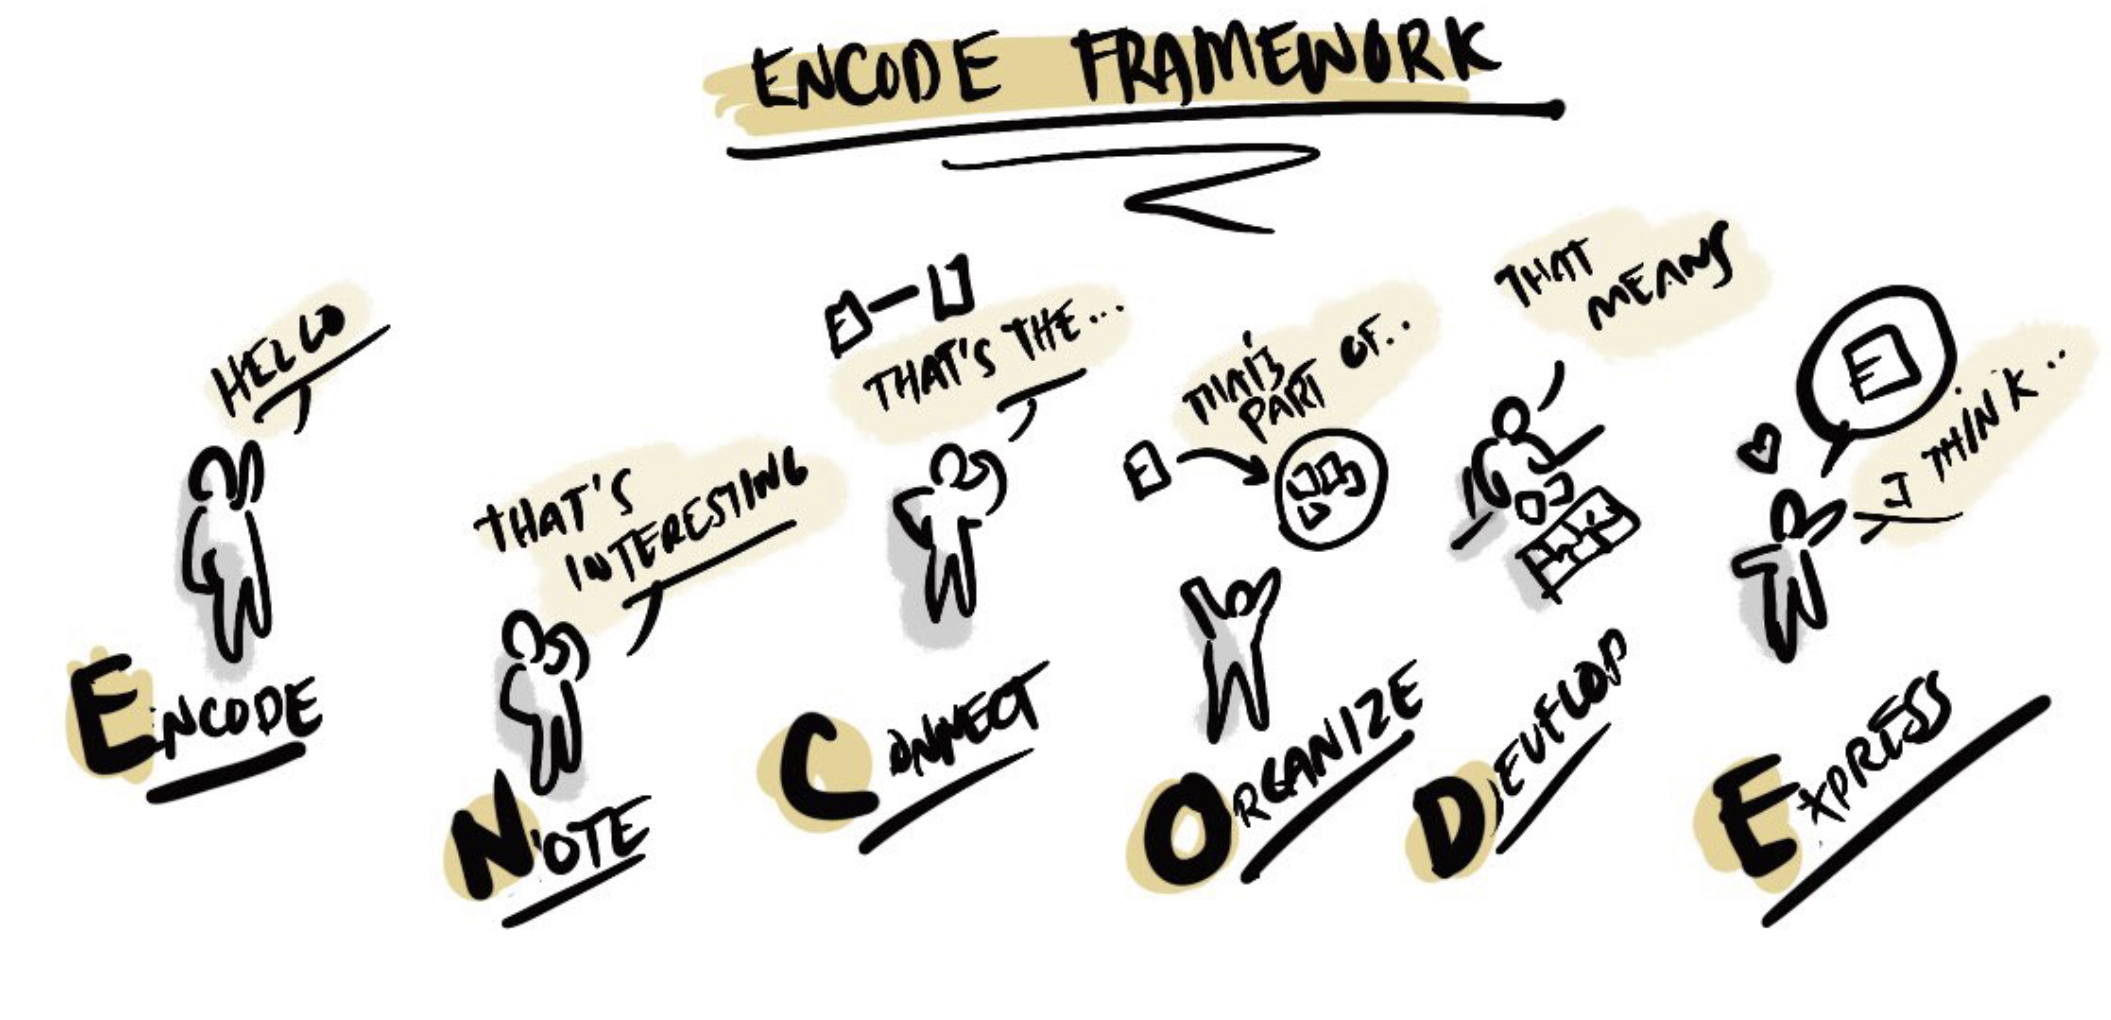 ENCODE FRAMEWORK
HELLO
ENCODE
THAT'S
INTERESTING
NOTE
THAT'S THE...
CONNECT
THAT'S
PART OF..
ORGANIZE
THAT
MEANS
DEVELOP
I THINK..
EXPRESS